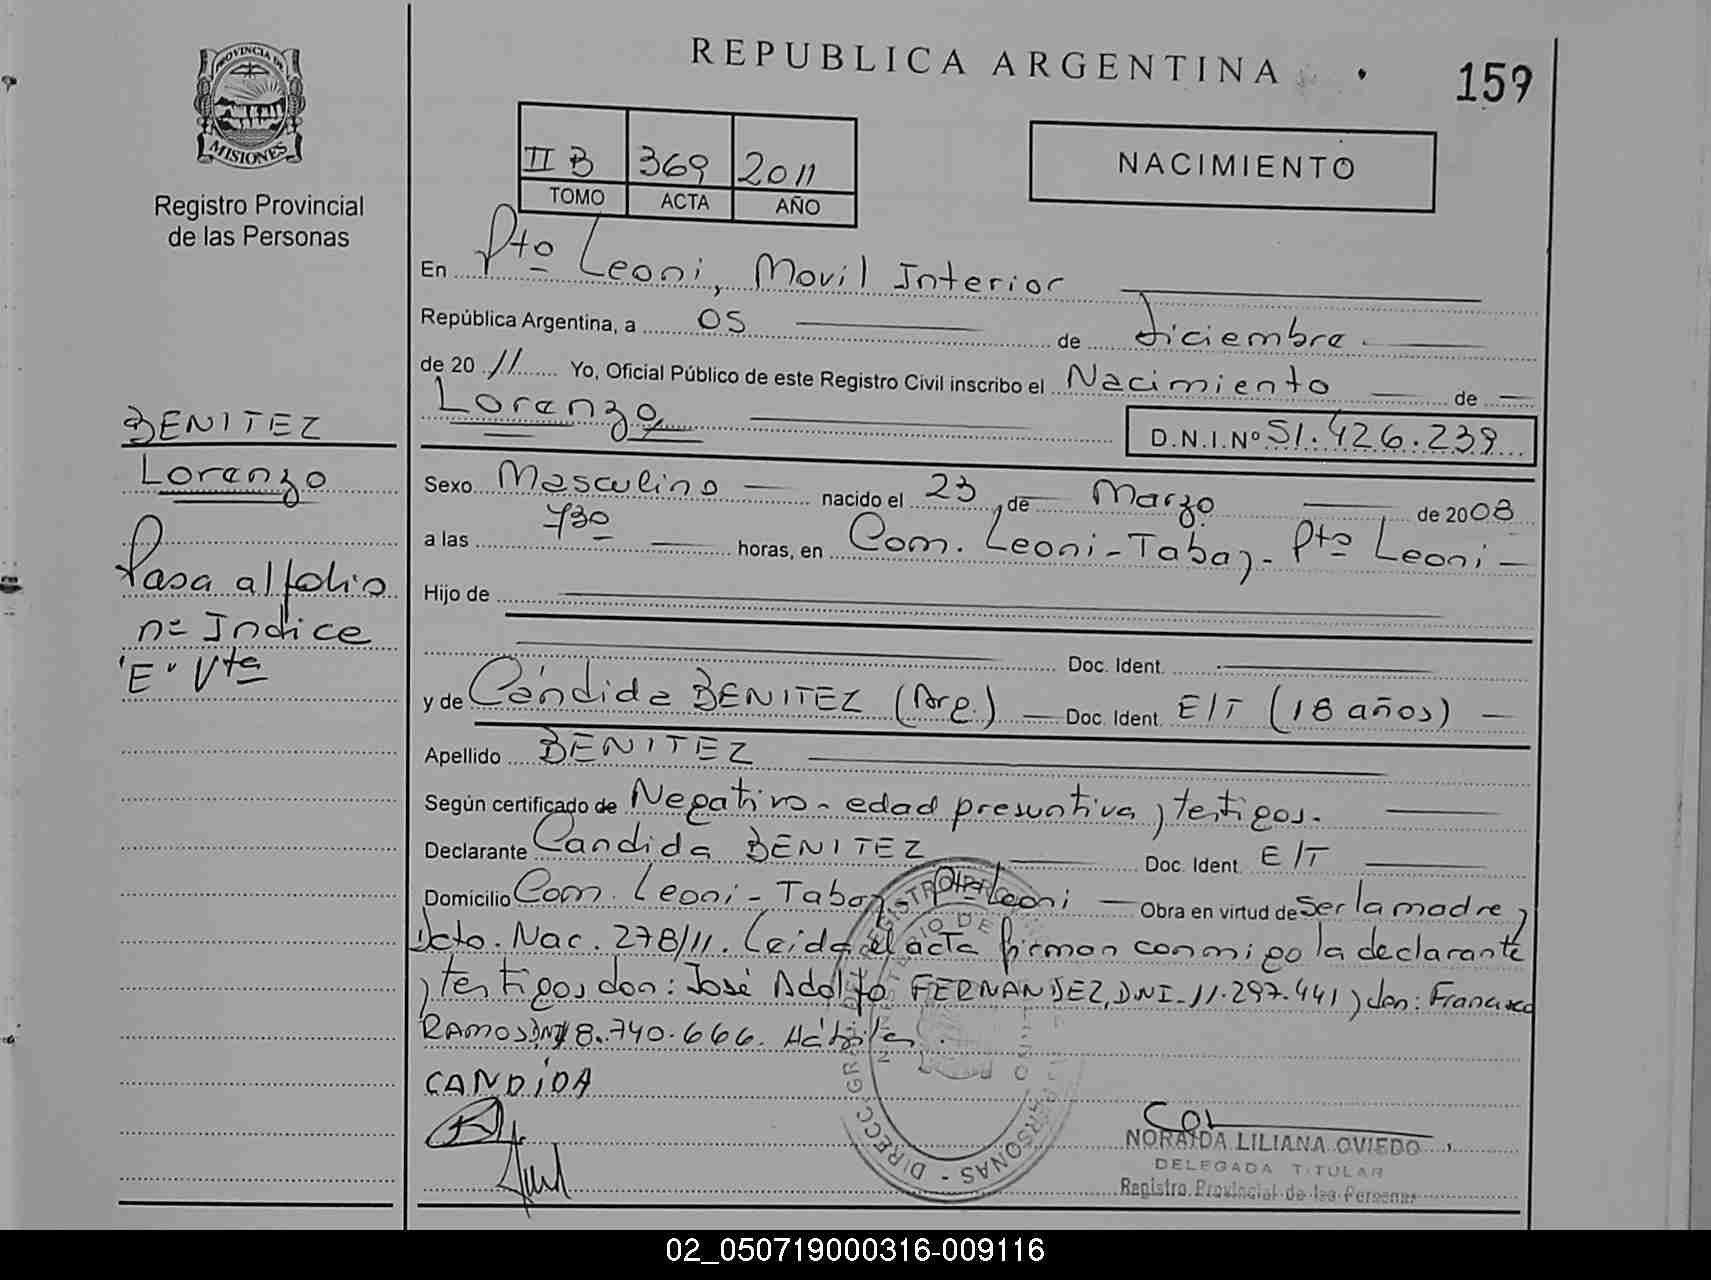 REPUBLICA ARGENTINA
159
PROVINCIA DE
MISIONES
Registro Provincial
de las Personas
II B 369 2011
TOMO ACTA AÑO
NACIMIENTO
En Pto Leoni, Movil Interior
República Argentina, a 05 de diciembre
de 2011 Yo, Oficial Público de este Registro Civil inscribo el Nacimiento de
Lorenzo D.N.I.Nº 51.426.239
BENITEZ
Lorenzo
Pasa al folio
nº Indice
"E" Vta
Sexo Masculino nacido el 23 de Marzo de 2008
a las 730 horas, en Com. Leoni-Tabay- Pto Leoni-
Hijo de
Doc. Ident.
y de Cándida BENITEZ (Arg.) Doc. Ident. E/T (18 años)
Apellido BENITEZ
Según certificado de Negativo - edad presuntiva y testigos.
Declarante Candida BENITEZ Doc. Ident. E/T
Domicilio Com. Leoni-Tabay- Pto Leoni Obra en virtud de ser la madre y
Dcto. Nac. 278/11. Leida el acta firman conmigo la declarante
y testigos don: José Adolfo FERNANDEZ, DNI-11.297.441 y don: Francisco
RAMOS DNI 8.740.666. Hábiles.
CANDIDA
NORAIDA LILIANA OVIEDO
DELEGADA TITULAR
Registro Provincial de las Personas
02_050719000316-009116